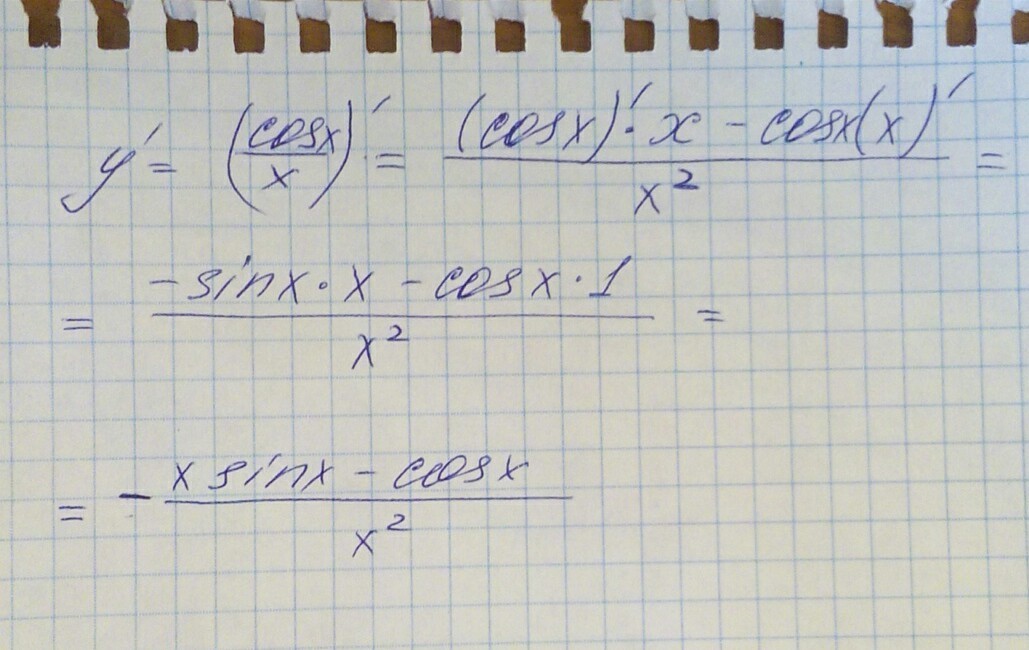 y' = (cosx/x)' = ((cosx)'·x - cosx(x)')/x² =
= (-sinx·x - cosx·1)/x² =
= -(x sinx - cosx)/x²